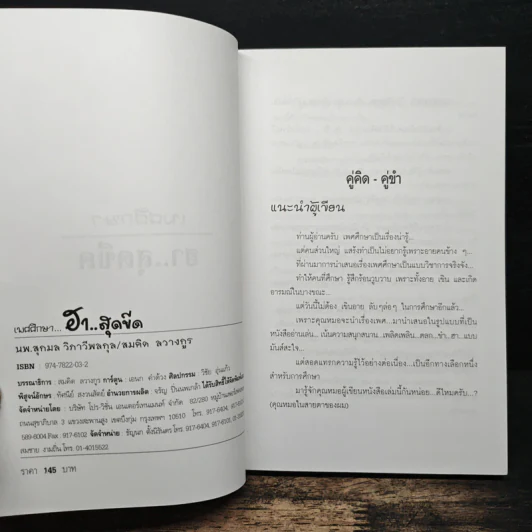 เพศศึกษา... ฮา..สุดขีด
นพ.สุกมล วิภาวีพลกุล/สมคิด ลวางกูร
ISBN : 974-7822-03-2
บรรณาธิการ : สมคิด ลวางกูร การ์ตูน : เอนก คำด้วง ศิลปกรรม : วิชัย อุ่นแก้ว
พิสูจน์อักษร : ทัศนีย์ สงวนสัตย์ อำนวยการผลิต : จรัญ
จัดจำหน่ายโดย : บริษัท โปรวิชั่น เอนเตอร์เทนเมนท์ จำกัด 82/280
ถนนสุขาภิบาล 3 แขวงสะพานสูง เขตบึงกุ่ม กรุงเทพฯ 10510 โทร. 917-6404,
589-6004 Fax : 917-6102 จัดจำหน่าย : โทร. 917-6404,
โทร. 01-4015522
ราคา 145 บาท
คู่คิด - คู่ขำ
แนะนำผู้เขียน
ท่านผู้อ่านครับ เพศศึกษาเป็นเรื่องน่ารู้...
แต่คนส่วนใหญ่ แสร้งทำเป็นไม่อยากรู้เพราะอายคนข้าง ๆ...
ที่ผ่านมาการนำเสนอเรื่องเพศศึกษาเป็นแบบวิชาการจริงจัง...
ทำให้คนที่ศึกษา รู้สึกร้อนวูบวาบ เพราะทั้งอาย เขิน และเกิด
อารมณ์ในบางขณะ...
แต่วันนี้ไม่ต้อง เขินอาย ลับๆล่อๆ ในการศึกษาอีกแล้ว...
เพราะคุณหมอจะนำเรื่องเพศ...มานำเสนอในรูปแบบที่เป็น
หนังสืออ่านเล่น... เน้นความสนุกสนาน...เพลิดเพลิน...ตลก...ขำ...ฮา...แบบ
มันส์สะใจ...
แต่สอดแทรกความรู้ไว้อย่างต่อเนื่อง...เป็นอีกทางเลือกหนึ่ง
สำหรับการศึกษา
มารู้จักคุณหมอผู้เขียนหนังสือเล่มนี้กันหน่อย...ดีไหมครับ...?
(คุณหมอในสายตาของผม)